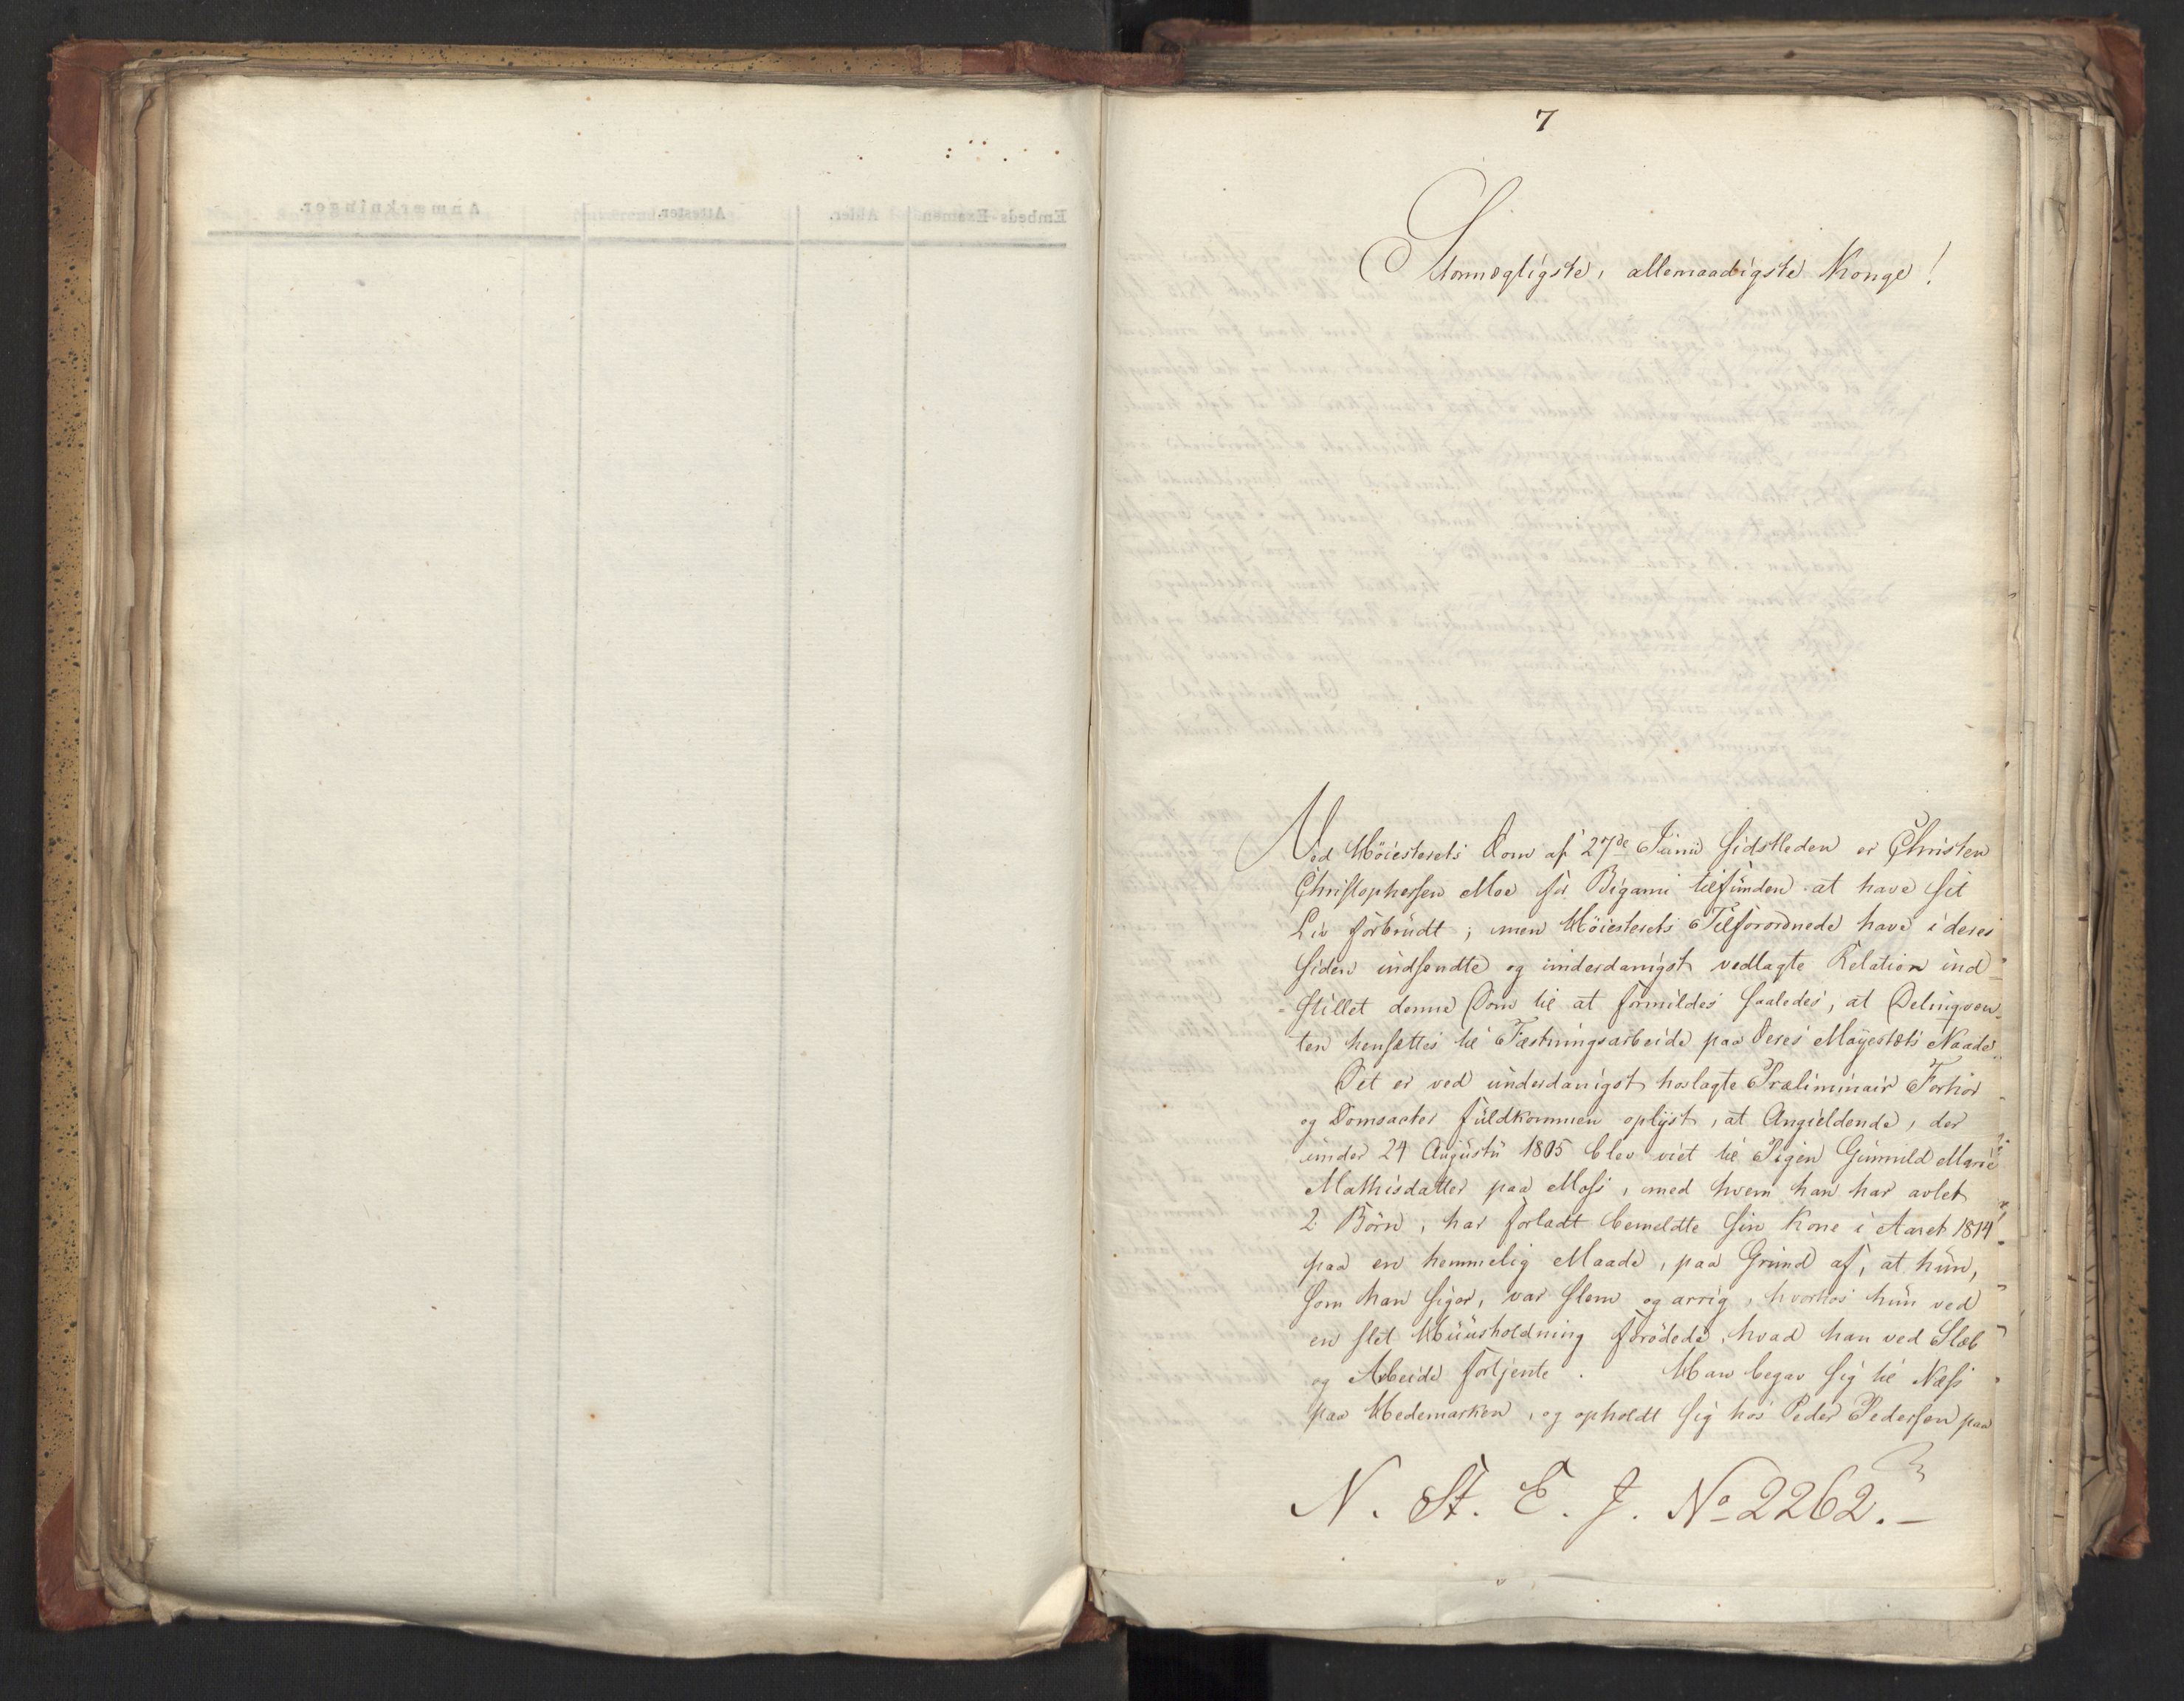 7
Stormægtigste, allernaadigste Konge!
Ved Höiesterets Dom af 27de Junii sidstleden er Christen
Christophersen Moe for Bigami tilfunden at have sit
Liv forbrudt; men Höiesterets Tilforordnede have i deres
siden indsendte og underdanigst vedlagte Relation ind-
stillet denne Dom til at formildes saaledes, at Delinqven-
ten hensættes til Fæstningsarbeide paa Deres Majestæts Naade.
Det er ved underdanigst hoslagte Præliminair Forhör
og Domsacter fuldkommen oplyst, at Angieldende, der
under 24 Augustii 1805 blev viet til Pigen Gunnild Marie
Mathisdatter paa Moss, med hvem han har avlet
2 Börn, har forladt bemeldte sin Kone i Aaret 1814
paa en hemmelig Maade, paa Grund af, at hun,
som han siger, var slem og arrig, hvorhos hun ved
en slet Huusholdning forödede, hvad han ved Slæb
og Arbeide fortjente. Han begav sig til Næss
paa Hedemarken, og opholdt sig hos Peder Pedersen paa
N. St. E. J. No 2262.-
Anmærkninger.
Attester.
Alder.
Embeds-Examen